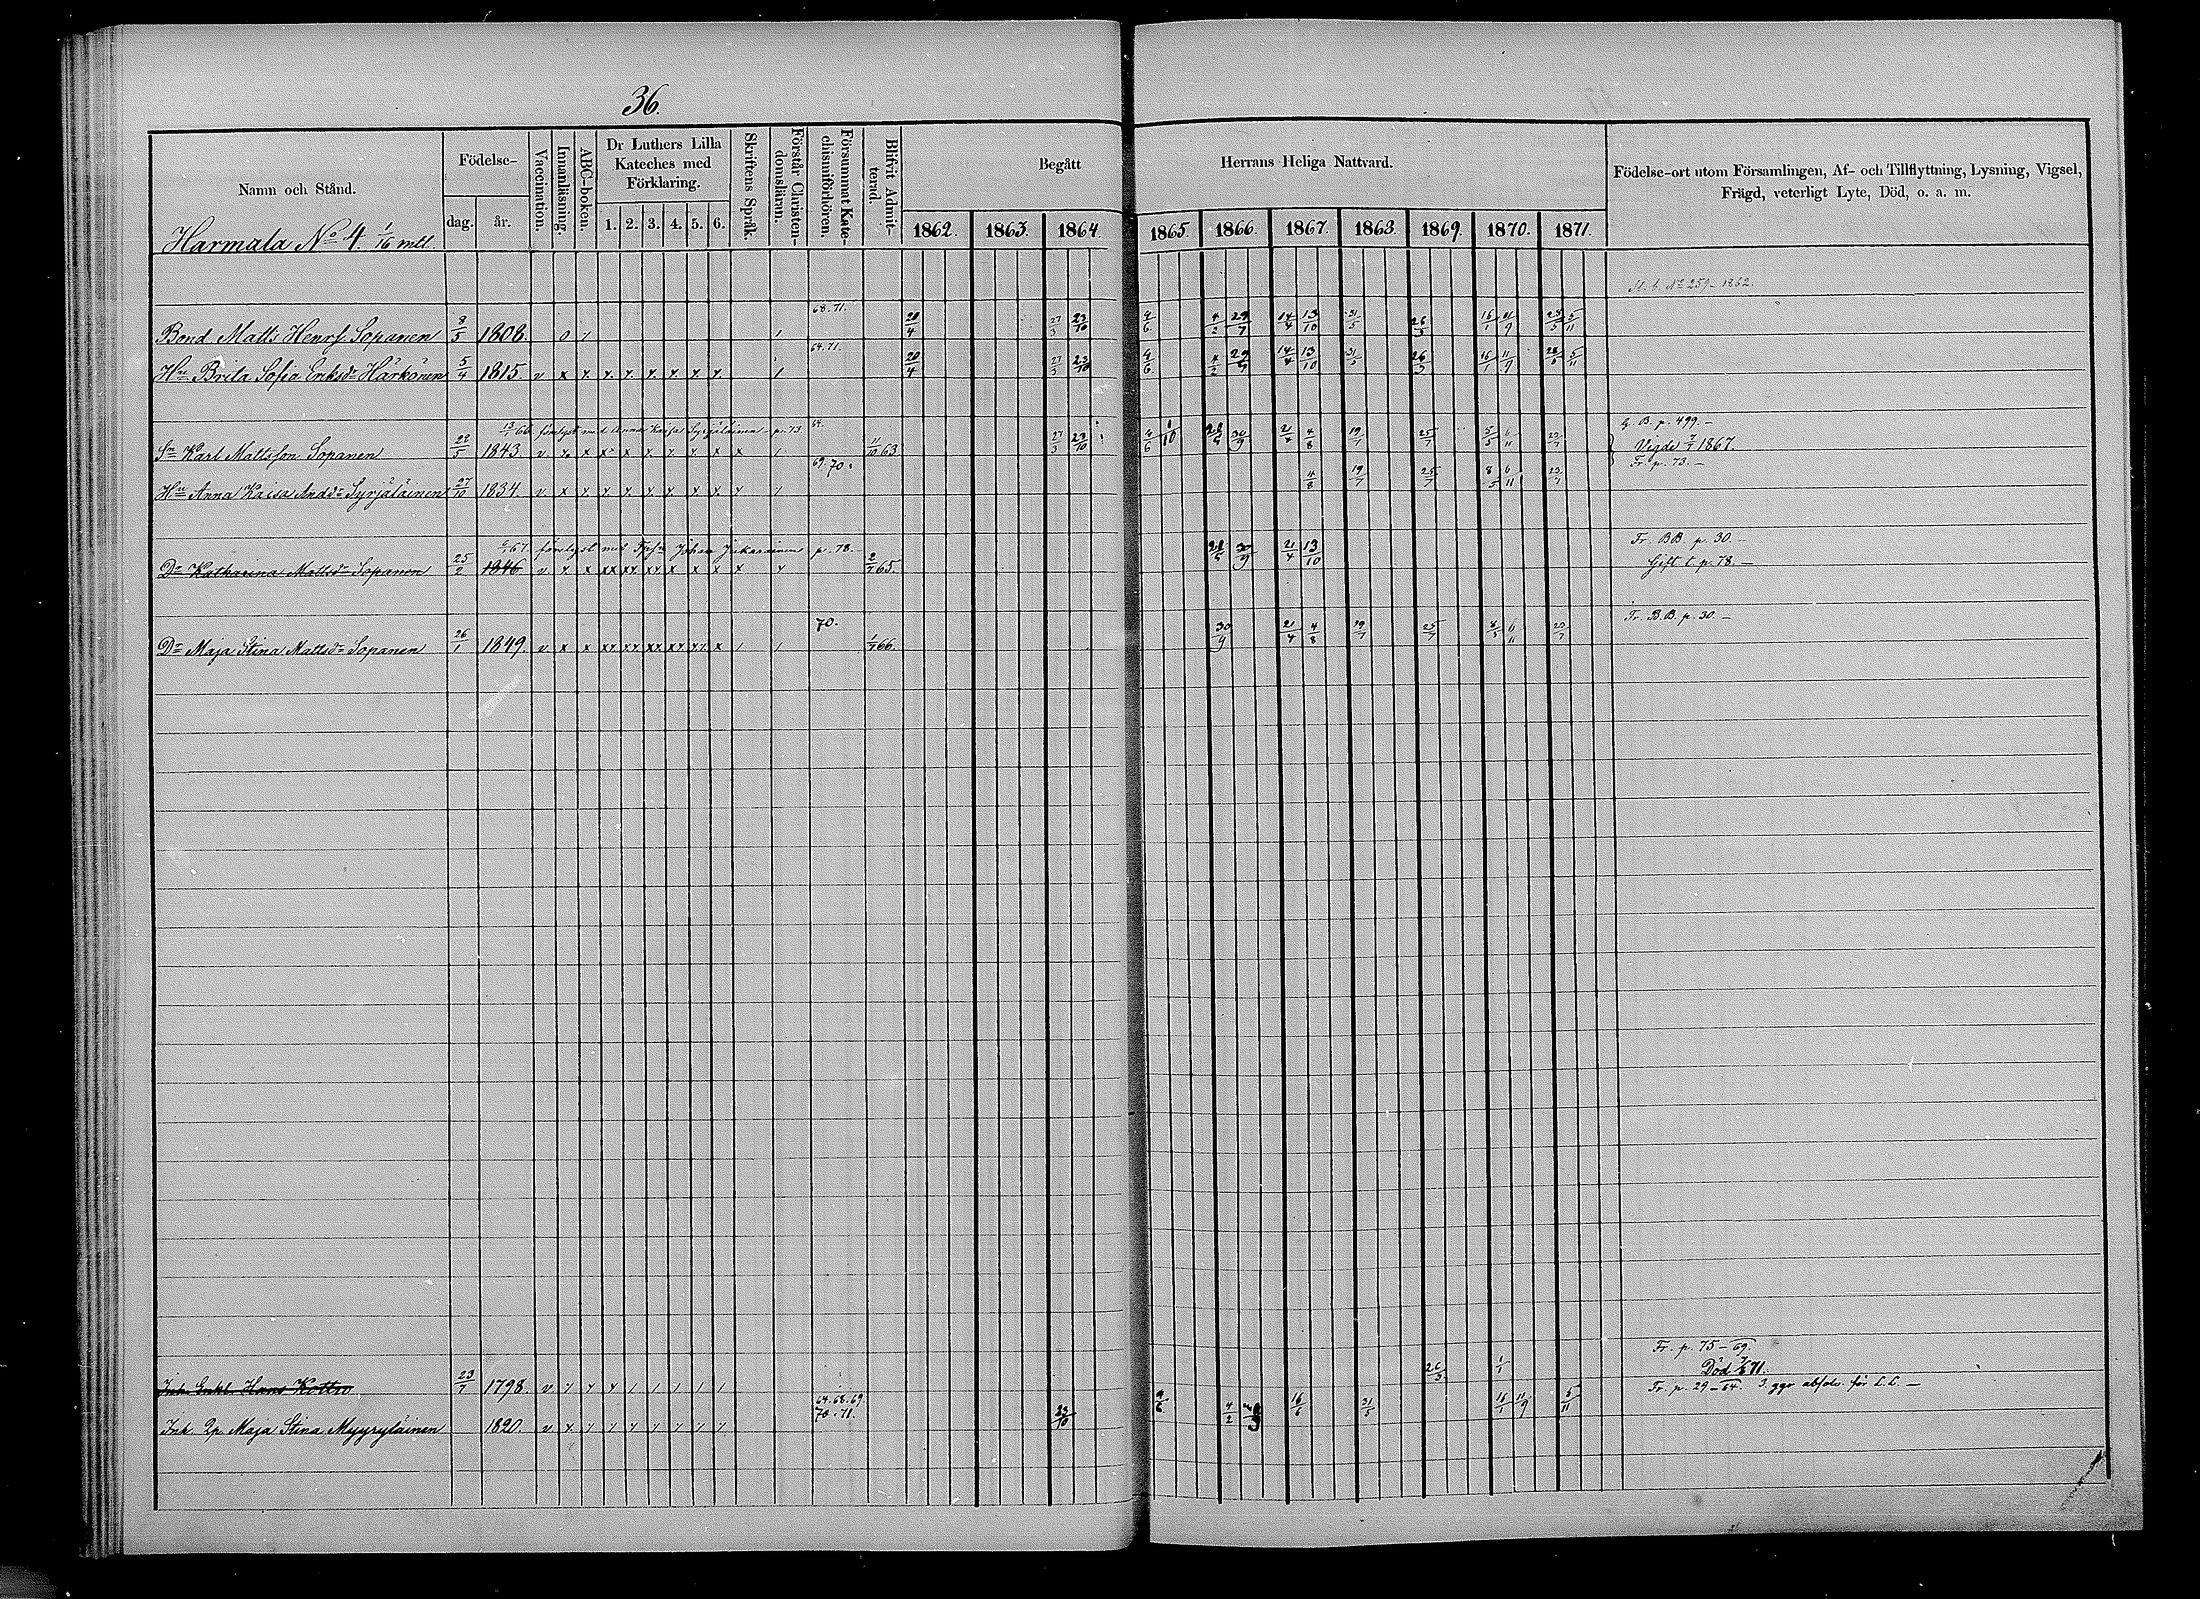 36.
Namn och Stånd.
Födelse-
dag.
år.
Vaccination.
Innanläsning.
ABC-boken.
Dr Luthers Lilla
Kateches med
Förklaring.
1. 2. 3. 4. 5. 6.
Skriftens Språk.
Förstår Christen-
domsläran.
Försummat Kate-
chismiförhören.
Blifvit Admit-
terad.
Begått Herrans Heliga Nattvard.
1862. 1863. 1864. 1865. 1866. 1867. 1868. 1869. 1870. 1871.
Födelse-ort utom Församlingen, Af- och Tillflyttning, Lysning, Vigsel,
Frägd, veterligt Lyte, Död, o. a. m.
Harmala No 4. 1/16 mtl.
No 259 - 1862.
68. 71.
Bond Matts Henrs. Sopanen 8/5 1808. 0 / / 20/4 27/3 23/10 4/6 4/2 29/7 14/4 13/10 31/5 26/3 16/1 11/9 28/5 5/11
64. 71.
Hu Brita Sofia Eriksdr Härkönen 5/4 1815. v x x x x x x x x / 20/4 27/3 23/10 4/6 4/2 29/7 14/4 13/10 31/5 26/3 16/1 11/9 28/5 5/11
13/1 66. förelyst med Anna Kaisa Syrjäläinen p. 73. 64. G. B. p. 499. -
Sn Karl Mattsson Sopanen 22/5 1843. v x x x x x x x x x / 11/10 63. 27/3 23/10 4/6 1/10 30/9 21/4 4/8 19/7 25/7 6/11 23/7 Vigde 2/7 1867.
69. 70. Fr. p. 73. -
Hu Anna Kaisa Andsdr Syrjäläinen 27/10 1834. v x x x x x x x x x / 4/8 19/7 25/7 8/5 6/11 23/7
67. förelyst med Johan p. 78. - Fr. BB. p. 30. -
Dr Katharina Mattsdr Sopanen 25/2 1846. v x x xx xx xx x x x x x 2/7 65. 30/9 21/4 13/10 Gift t. p. 78. -
70. Fr. B.B. p. 30. -
Dr Maja Stina Mattsdr Sopanen 26/1 1849. v x x xx xx xx xx xx x / / 1/7 66. 30/9 21/4 4/8 19/7 25/7 8/5 6/11 23/7
Fr. p. 75 - 69.
Inh. Enkl. Hans Kottro 23/7 1798. v x x x / / / / / 26/3 1/1 Död 71.
64. 68. 69. Fr. p. 29 - 64. 3. ggr absolv. för L.L. -
70. 71.
Inh. Qp. Maja Stina Myyryläinen 1820. v x / / / / / / / 23/10 4/2 16/6 31/5 16/1 11/9 5/11